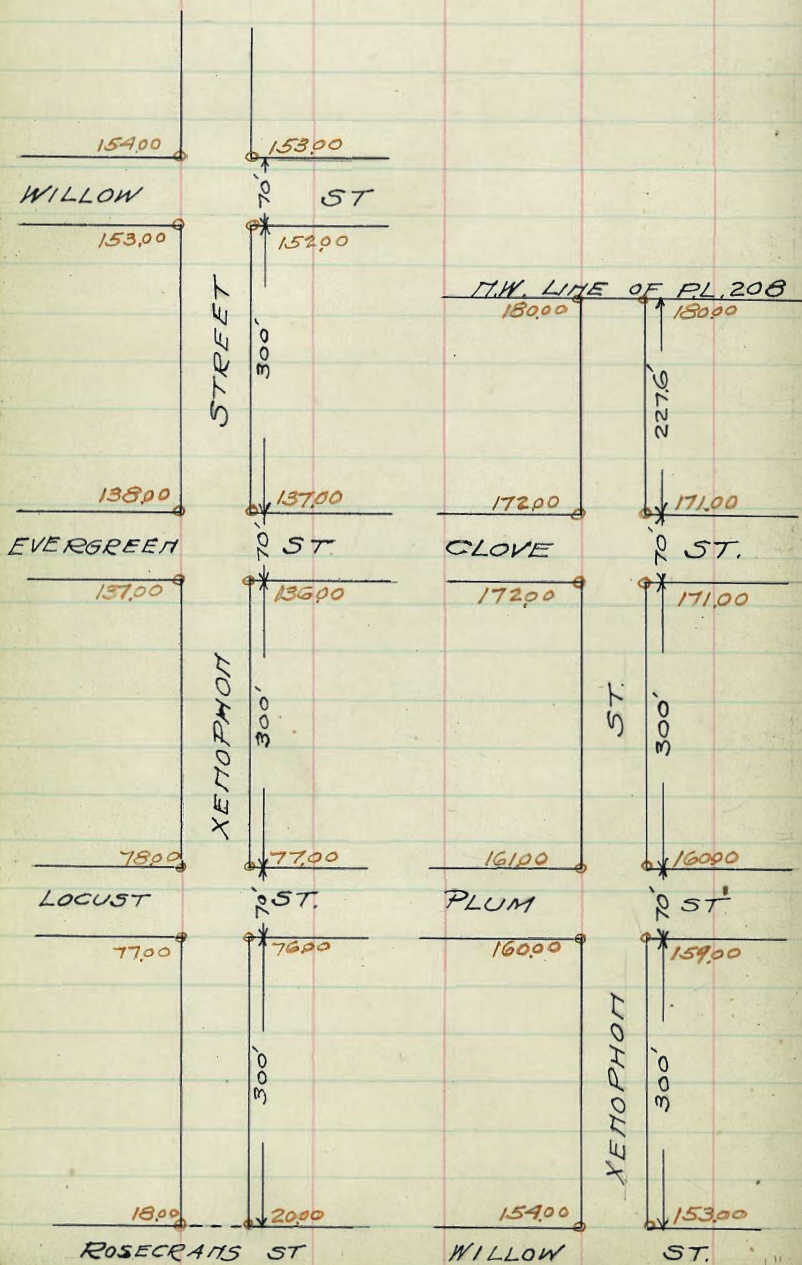 154.00 153.00
WILLOW 70' ST
153.00 152.00
STREET
300'
138.00 137.00
EVERGREEN 70' ST
137.00 136.00
XENOPHON
300'
78.00 77.00
LOCUST 70' ST.
77.00 76.00
300'
18.00 20.00
ROSECRANS ST
N.W. LINE OF P.L. 208
180.00 180.00
227.6'
172.00 171.00
CLOVE 70' ST.
172.00 171.00
ST.
300'
161.00 160.00
PLUM 70' ST.
160.00 159.00
XENOPHON
300'
154.00 153.00
WILLOW ST.